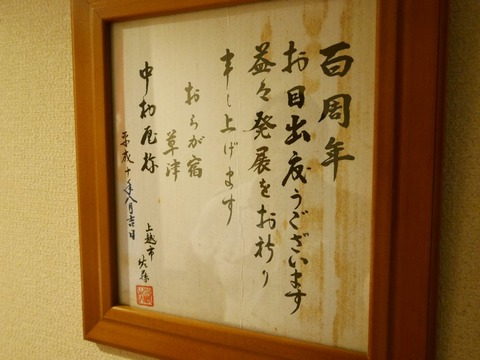 百周年
お目出度うございます
益々発展をお祈り
申し上げます
おらが宿
草津
中村屋様
平成十年八月吉日
上越市